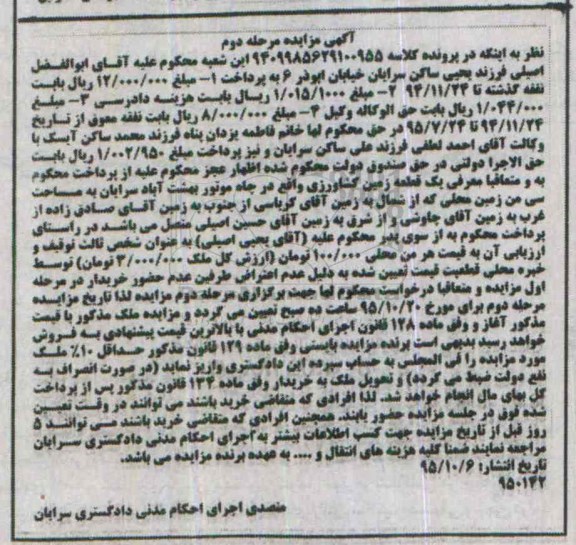 آگهی مزایده مرحله دوم
نظر به اینکه در پرونده کلاسه ۹۴۰۹۹۸۵۶۲۹۱۰۰۹۵۵ این شعبه محکوم علیه آقای ابوالفضل
اصیلی فرزند یحیی ساکن سرایان خیابان ابوذر ۶ به پرداخت ۱- مبلغ ۱۲/۰۰۰/۰۰۰ ریال بابت
نفقه گذشته تا ۹۴/۱۱/۲۴ ۲- مبلغ ۱/۰۱۵/۱۰۰۰ ریال بابت هزینه دادرسی ۳- مبلغ
۱/۰۴۴/۰۰۰ ریال بابت حق الوکاله وکیل ۴- مبلغ ۸/۰۰۰/۰۰۰ ریال بابت نفقه معوق از تاریخ
۹۴/۱۱/۲۴ تا ۹۵/۷/۲۴ در حق محکوم لها خانم فاطمه یزدان پناه فرزند محمد ساکن آیسک با
وکالت آقای احمد لطفی فرزند علی ساکن سرایان و نیز پرداخت مبلغ ۱/۰۰۲/۹۵۰ ریال بابت
حق الاجرا دولتی در حق صندوق دولت محکوم شده اظهار عجز محکوم علیه از پرداخت محکوم
به و متعاقبا معرفی یک قطعه زمین کشاورزی واقع در چاه موتور بهشت آباد سرایان به مساحت
سی من زمین محلی که از شمال به زمین آقای کرباسی از جنوب به زمین آقای صادق زاده از
غرب به زمین آقای چاوشی و از شرق به زمین آقای حسین اصیلی متصل می باشد در راستای
پرداخت محکوم به از سوی پدر محکوم علیه (آقای یحیی اصیلی) به عنوان شخص ثالث توقیف و
ارزیابی آن به قیمت هر من محلی ۱۰۰/۰۰۰ تومان (ارزش کل ملک ۳/۰۰۰/۰۰۰ تومان) توسط
خبره محلی قطعیت قیمت تعیین شده به دلیل عدم اعتراض طرفین عدم حضور خریدار در مرحله
اول مزایده و متعاقبا درخواست محکوم لها جهت برگزاری مرحله دوم مزایده لذا تاریخ مزایده
مرحله دوم برای مورخ ۹۵/۱۰/۲۰ ساعت ده صبح تعیین می گردد و مزایده ملک مذکور با قیمت
مذکور آغاز و وفق ماده ۱۲۸ قانون اجرای احکام مدنی با بالاترین قیمت پیشنهادی به فروش
خواهد رسید بدیهی است برنده مزایده بایستی وفق ماده ۱۲۹ قانون مذکور حداقل ۱۰٪ ملک
مورد مزایده را فی المجلس به حساب سپرده این دادگستری واریز نماید (در صورت انصراف به
نفع دولت ضبط می گردد) و تحویل ملک به خریدار وفق ماده ۱۳۴ قانون مذکور پس از پرداخت
کل بهای مال انجام خواهد شد. لذا افرادی که متقاضی خرید باشند می توانند در وقت تعیین
شده فوق در جلسه مزایده حضور یابند. همچنین افرادی که متقاضی خرید باشند می توانند ۵
روز قبل از تاریخ مزایده جهت کسب اطلاعات بیشتر به اجرای احکام مدنی دادگستری سرایان
مراجعه نمایند ضمنا کلیه هزینه های انتقال و .... به عهده برنده مزایده می باشد.
تاریخ انتشار: ۹۵/۱۰/۶
۹۵۰۱۴۲
متصدی اجرای احکام مدنی دادگستری سرایان